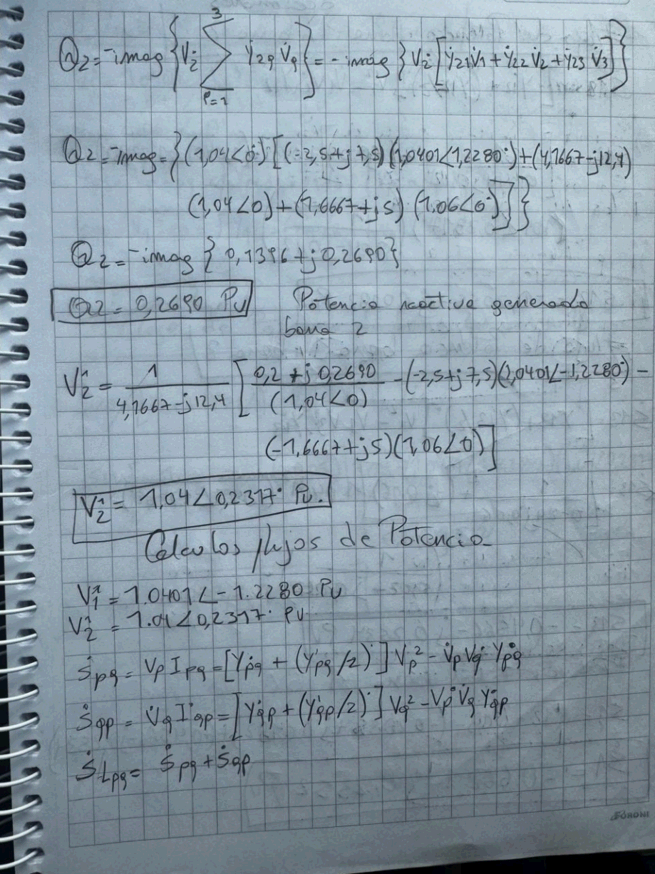 Q2 = -imag { V2* Σ(p=1 → 3) Y2q Vq } = -imag { V2* [Y21 V1 + Y22 V2 + Y23 V3] }
Q2 = -imag = { (1,04<0°)* [(-2,5+j7,5)(1,0401<1,2280°)+(4,1667-j12,4)
(1,04<0)+(1,6667+j5)(1.06<0°] ] }
Q2 = -imag { 0,1396+j0,2690}
Q2 = 0,2690 Pu Potencia reactiva generada
barra 2
V2^1 = 1 / (4,1667-j12,4) [ (0,2+j0,2690) / (1,04<0) - (-2,5+j7,5)(1,0401<-1,2280°) -
(-1,6667+j5)(1,06<0°) ]
V2^1 = 1.04<0,2317° Pu.
Calculos flujos de Potencia
V1^1 = 1.0401<-1.2280 Pu
V2^1 = 1.04<0,2317° Pu
Spq = Vp Ipq = [Ypq* + (Y'pq/2)*] Vp² - Vp Vq* Ypq*
Sqp = Vq I*qp = [Y*qp + (Y'qp/2)*] Vq² - Vp* Vq Y*qp
SLpq = Spq + Sqp